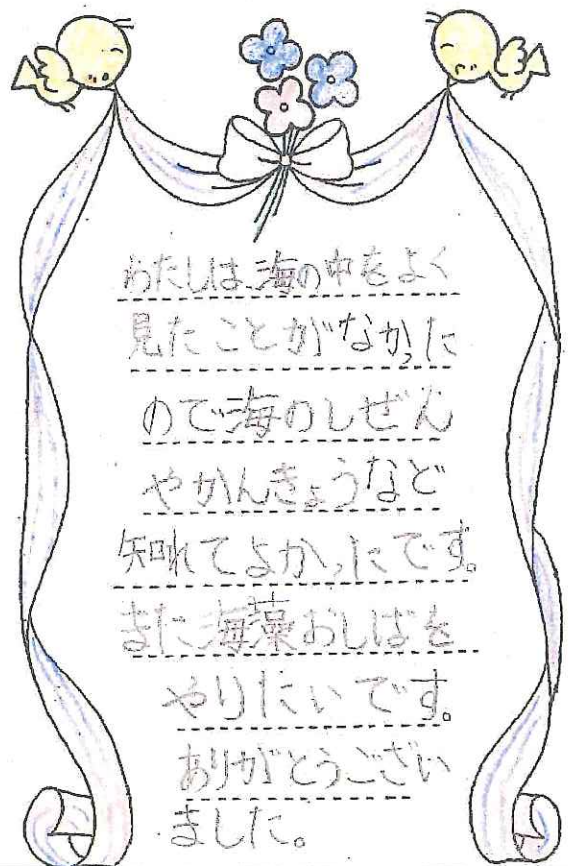 わたしは、海の中をよく
見たことがなかった
ので海のしぜん
やかんきょうなど
知れてよかったです。
また海藻おしばを
やりたいです。
ありがとうござい
ました。